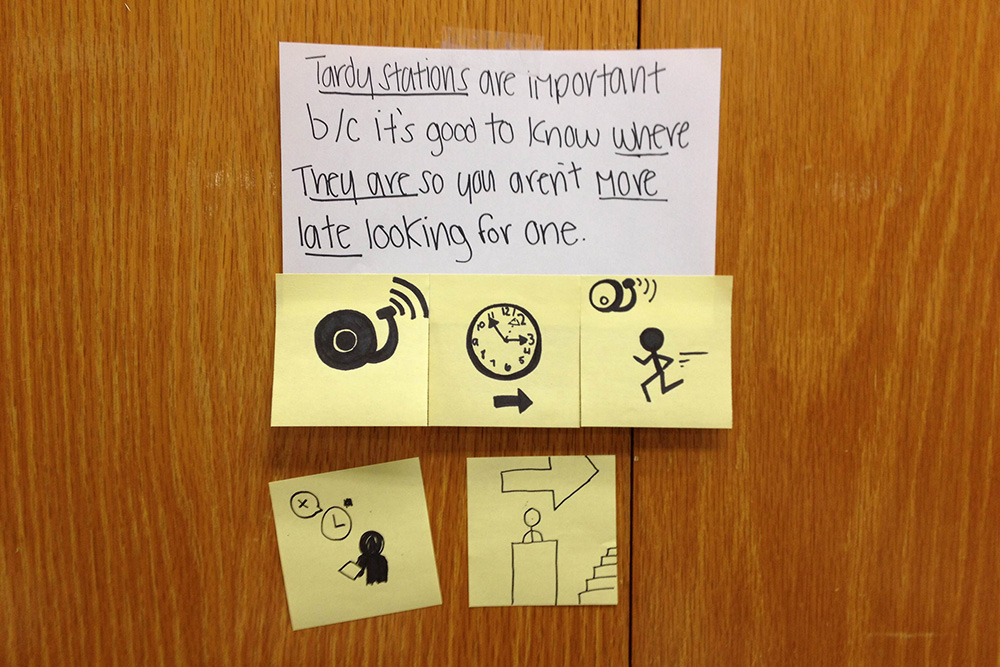 Tardy stations are important
b/c it's good to know where
They are so you aren't More
late looking for one.